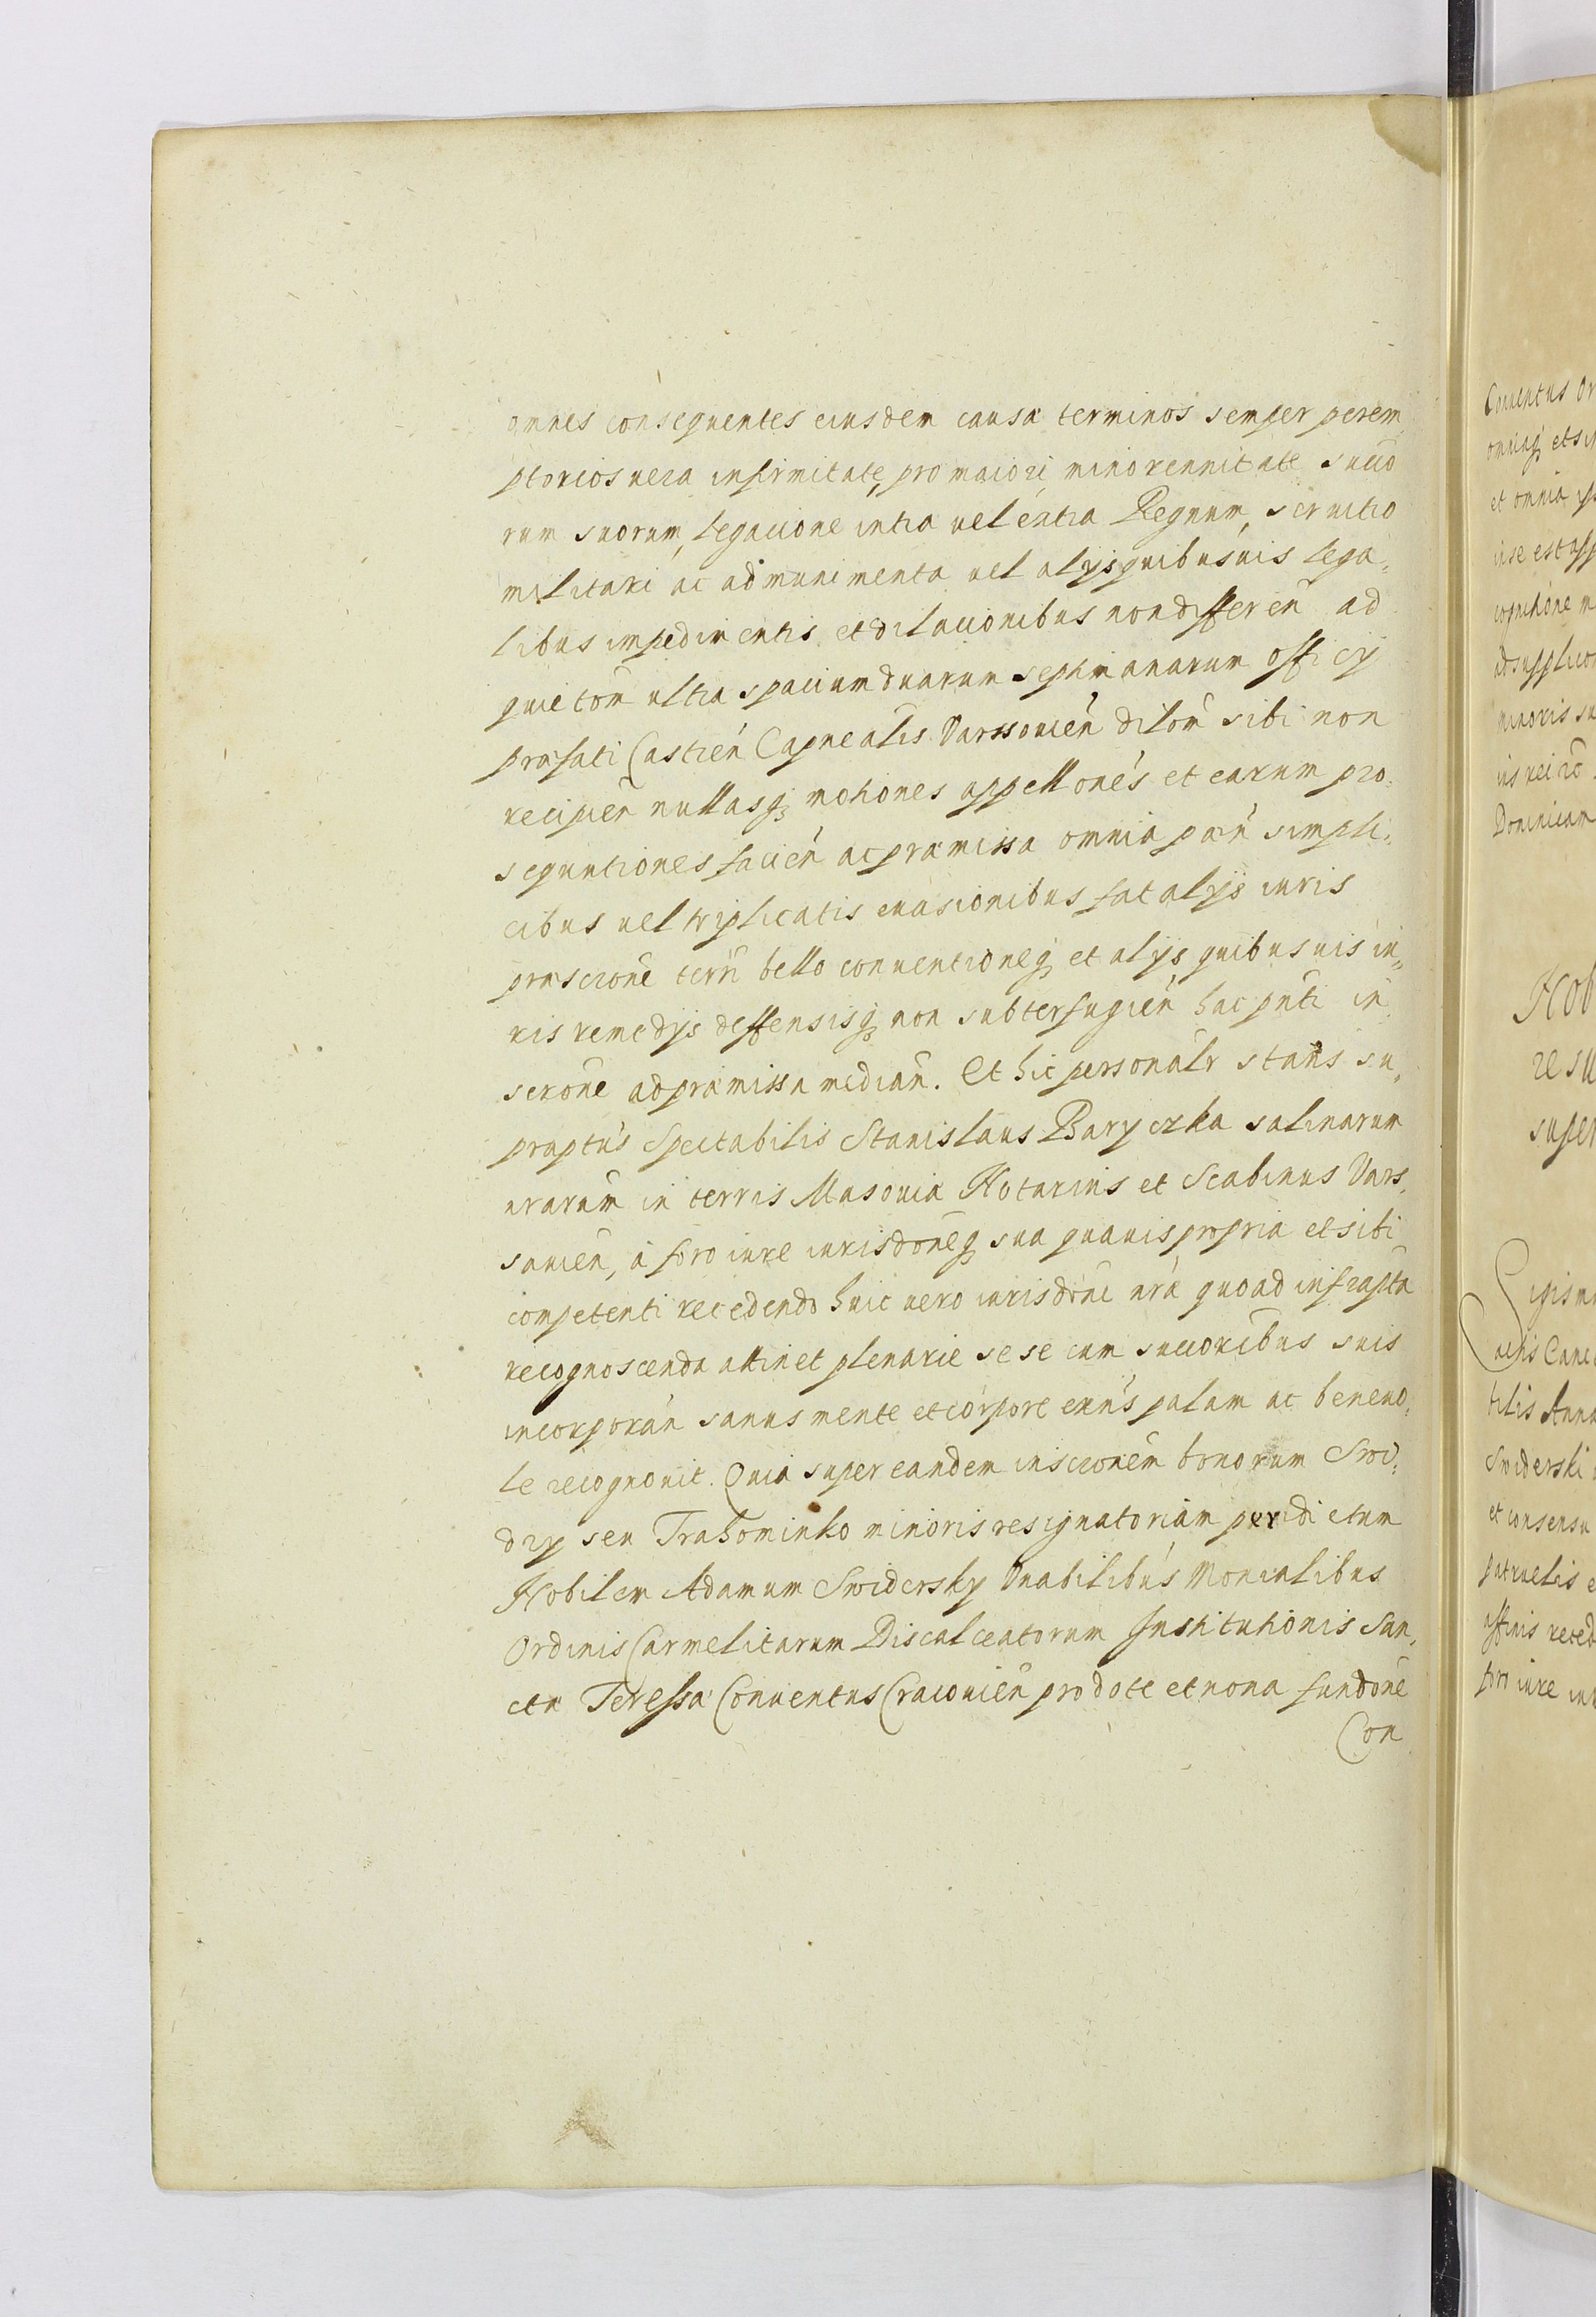 omnes consequentes eiusdem causæ terminos semper perem
ptorios vera infirmitate, pro maiori, minorennitate succo
rum suorum, legacione intra vel extra Regnum, servitio
militari ac ad munimenta vel alijs quibusvis lega,
libus impedimentis et dilacionibus non differeñ ad
quietom̃ ultra spacium duarum septimanarum officÿ
præfati Castreñ Capnealis Varssovieñ dilom̃ sibi non
recipieñ nullasq; motiones appellones et earum pro,
sequutiones facieñ ac præmissa omnia præñ simpli,
cibus vel triplicatis evasionibus fatalijs iuris
præscrone terrĩ bello conventioneq; et alijs quibusvis iu,,
ris remedijs deffensisq; non subterfugieñ hac pñti in
scrone ad præmissa mediañ. Et hic personalr stans su,
praptus Spectabilis Stanislaus Baryczka salinarum
nrarum in terris Masoviæ Notarius et Scabinus Vars,
sovieñ, à foro iure iurisdoneq; sua quavis propria et sibi
competenti recedendo huic vero iurisdõni nræ quoad infrapta
recognoscenda attinet plenarie sese cum succoribus suis
incorporañ sanus mente et corpore exñs palam ac benevo,
le recognovit. Quia super eandem inscronem bonorum Swi,
dry seu Trahominko minoris resignatoriam per dictum
Nobilem Adamum Swidersky Vnabilibus Monialibus
Ordinis Carmelitarum Discalceatorum Institutionis San,
ctæ Teressæ Conventus Cracovieñ pro dote et nona fundone
Con
Conventus Or
omniaq; et sin
et omnia
in se est
cognitione
minoris su
Dominicam
Nob
re su
super
Sigism
tilis Anna
Swiderski
et consensu
patruelis e
affinis reced
fori iure iur